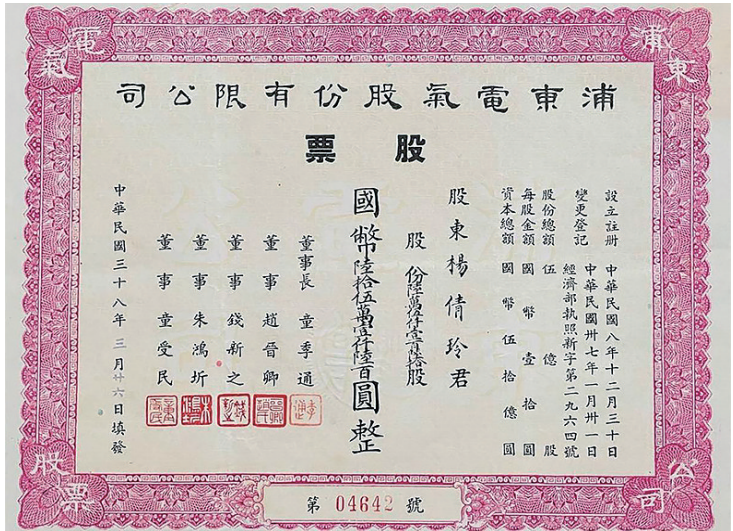 浦東
電氣
浦東電氣股份有限公司
股票
設立註冊 中華民國八年十二月三十日
變更登記 中華民國卅七年一月卅一日
經濟部執照新字第二九六四號
股份總額 伍億股
每股金額 國幣壹拾圓
資本總額 國幣伍拾億圓
股東楊倩玲君
股份陸萬伍仟壹百陸拾股
國幣陸拾伍萬壹仟陸百圓整
董事長 童季通
董事 趙晉卿
董事 錢新之
董事 朱鴻圻
董事 童受民
中華民國三十八年三月廿六日填發
公司
股票
第 04642 號